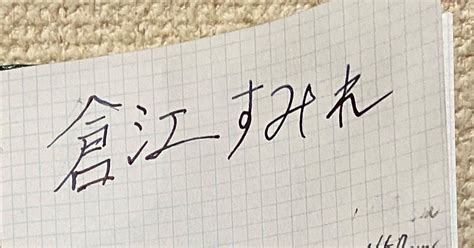 倉江すみれ